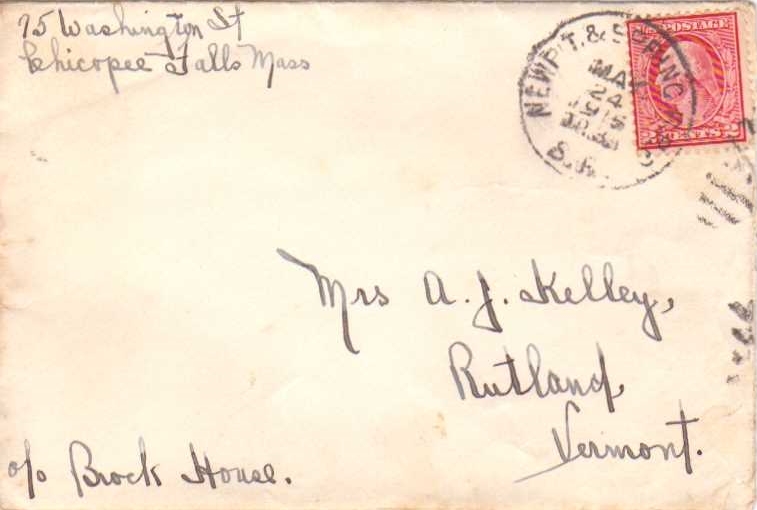 75 Washington St
Chicopee Falls Mass
NEWP'T. & SPRING
MAY
24
1915
U.S. POSTAGE
2 CENTS 2
Mrs A. J. Kelley,
Rutland,
Vermont.
c/o Brock House.